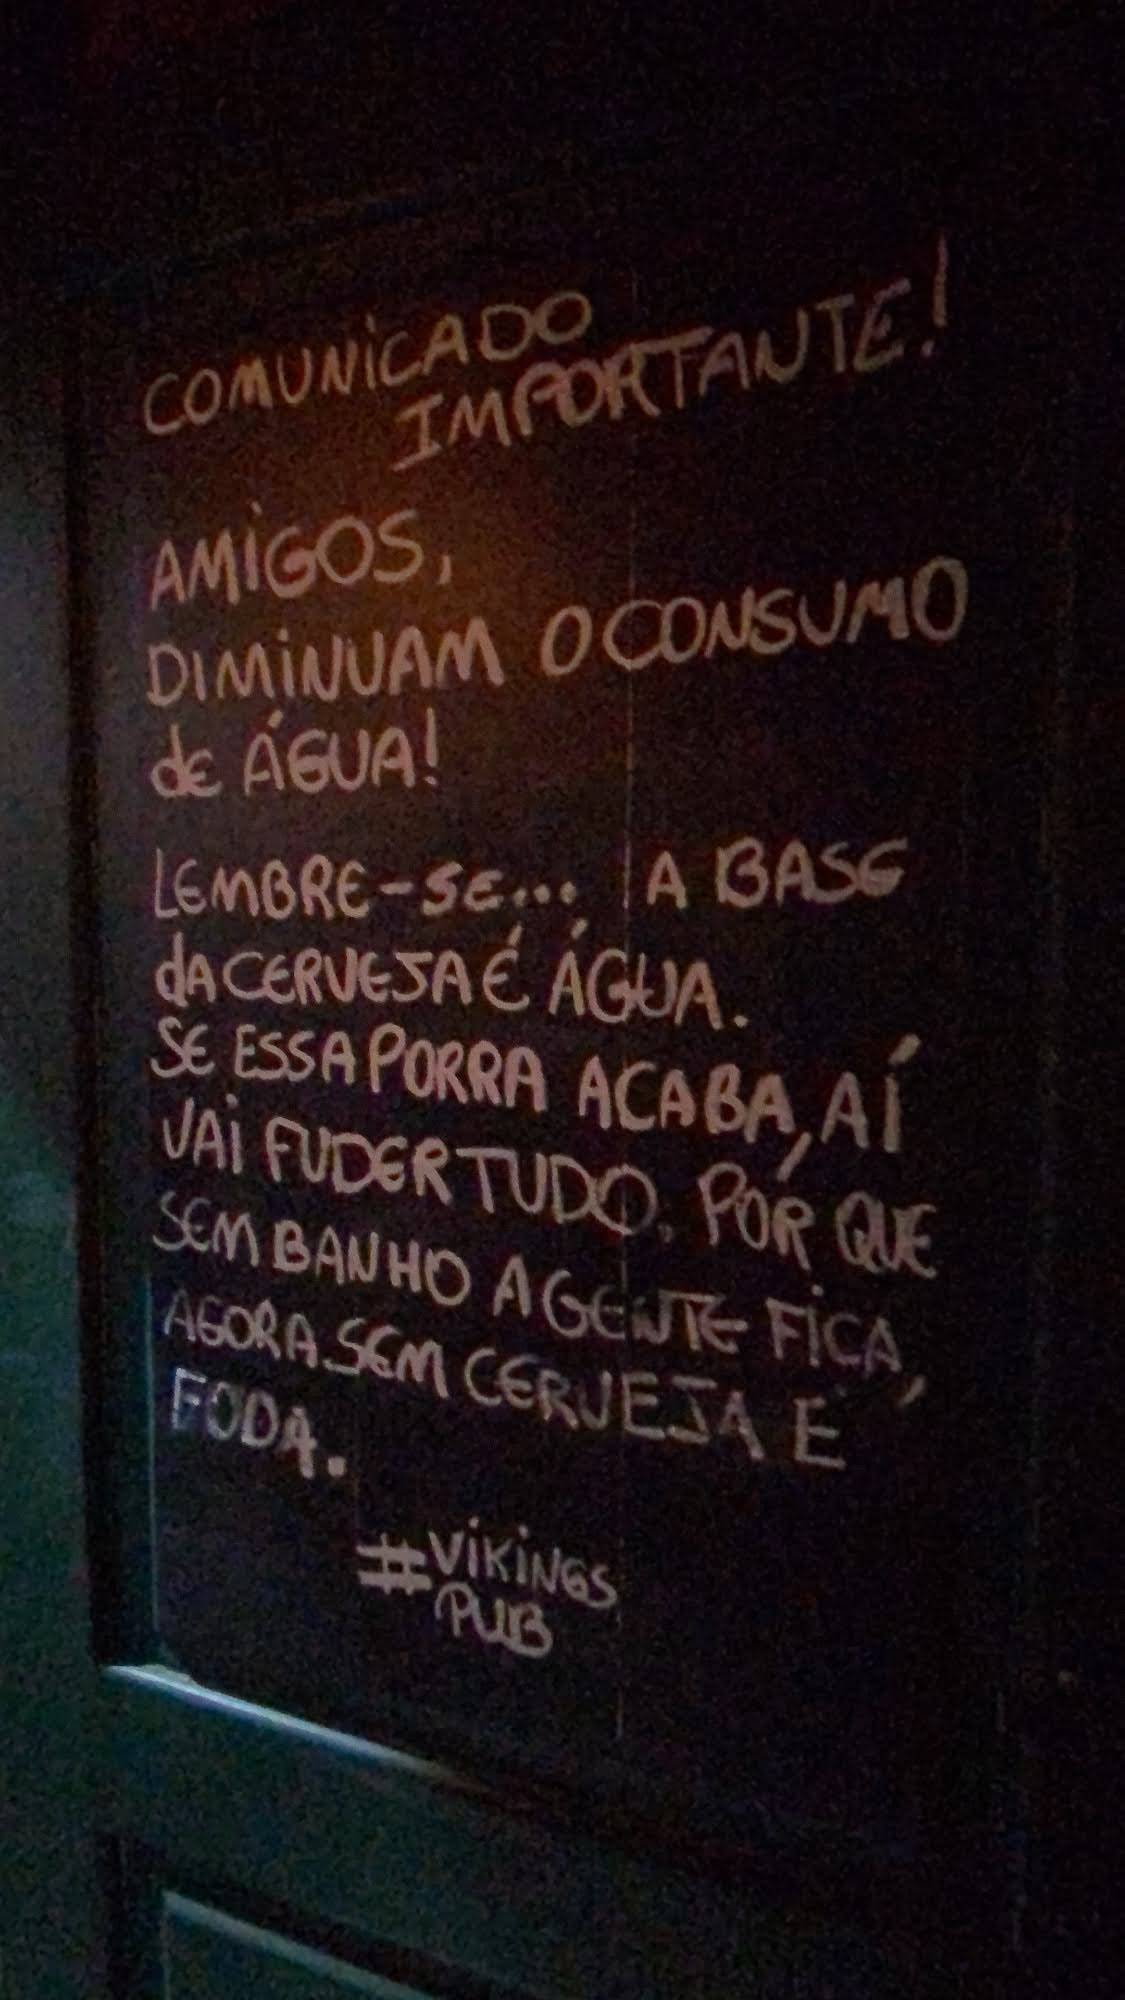 COMUNICADO
IMPORTANTE!
AMIGOS,
DIMINUAM O CONSUMO
de ÁGUA!
LEMBRE-SE... A BASE
dA CERVEJA É ÁGUA.
SE ESSA PORRA ACABA, AÍ
VAI FUDER TUDO. POR QUE
SEM BANHO A GENTE FICA,
AGORA SEM CERVEJA É
FODA.
#VIKINGS
PUB